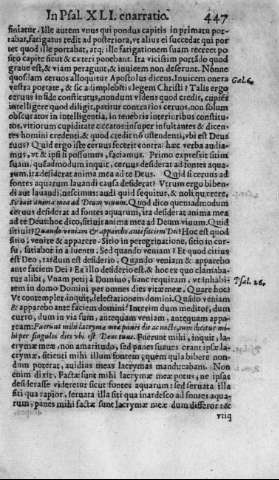 In Psal. XLI. enarratio. 447
finiatur. Ille autem vnus qui pondus capitis in primum por-
tabat, fatigatus redit ad posteriora, vt alius ei succedat qui por
tet quod ille portabat, atq; ille fatigationem suam recreet po
sito capite sicut & cæteri ponebant. Ita vicissim portādo quod
graue est, & viam peragunt, & inuicem non deserunt. Nonne
quosdam ceruos alloquitur Apostolus dicens, Inuicem onera
vestra portate, & sic adimplebitis legem Christi? Talis ergo Gal. 6.
ceruus in fide constitutus, nondum videns quod credit, cupiēs
intelligere quod diligit, patitur contrarios ceruos, non solum
obscuratos in intelligentia, in tenebris interioribus constitu-
tos, vitiorum cupiditate cæcatos: insuper insultantes & dicen-
tes homini credenti, & quod credit nō ostendenti, vbi est Deus
tuus? Quid ergo iste ceruus fecerit contra hæc verba audia-
mus, vt & ipsi si possumus, faciamus. Primo expressit sitim
suam, quēadmodum inquit, ceruus desiderat ad fontes aqua-
rum, ita desiderat anima mea ad te Deus. Quid si ceruus ad
fontes aquarum lauandi causa desiderat? Vtrum ergo bibendi
aut lauandi, nescimus: audi quid sequitur, & noli quærere,
Sitiuit anima mea ad Deum viuum. Quod dico quemadmodum
ceruus desiderat ad fontes aquarum, ita desiderat anima mea
ad te Deus: hoc dico, sitiuit anima mea ad Deum viuum. Quid
sitiuit? Quando veniam & apparebo ante faciem Dei? Hoc est quod
sitio, venire & apparere. Sitio in peregrinatione, sitio in cur-
su, satiabor in aduentu. Sed quando veniam? Et quod citum
est Deo, tardum est desiderio. Quando veniam & apparebo
ante faciem Dei? Ex illo desiderio est, & hoc ex quo clamaba-
tur alibi, Vnam petij à Domino, hanc requiram, vt inhabi-
tem in domo Domini per omnes dies vitæ meæ. Quare hoc? Psal. 26.
Vt contempler, inquit, delectationem domini. Quādo veniam
& apparebo ante faciem domini? Interim dum meditor, dum
curro, dum in via sum, antequam veniam, antequam appa-
ream: Fuerunt mihi lacrymæ meæ panis die ac nocte, cum dicitur mi-
hi per singulos dies vbi est Deus tuus. Fuerunt mihi, inquit, la-
crymæ meæ, non amaritudo, sed panes. suaues erant ipsæ la-
crymæ, sitienti mihi illum fontem, quem quia bibere non-
dum poteram, auidius meas lacrymas manducabam. Non
enim dixit, Factæ sunt mihi lacrymæ meæ potus, ne ipsas
desiderasse videretur sicut fontes aquarum: sed seruata illa
siti qua rapior, seruata illa siti qua inardesco ad fontes aqua-
rum, panes mihi factæ sunt lacrymæ meæ dum differor: &